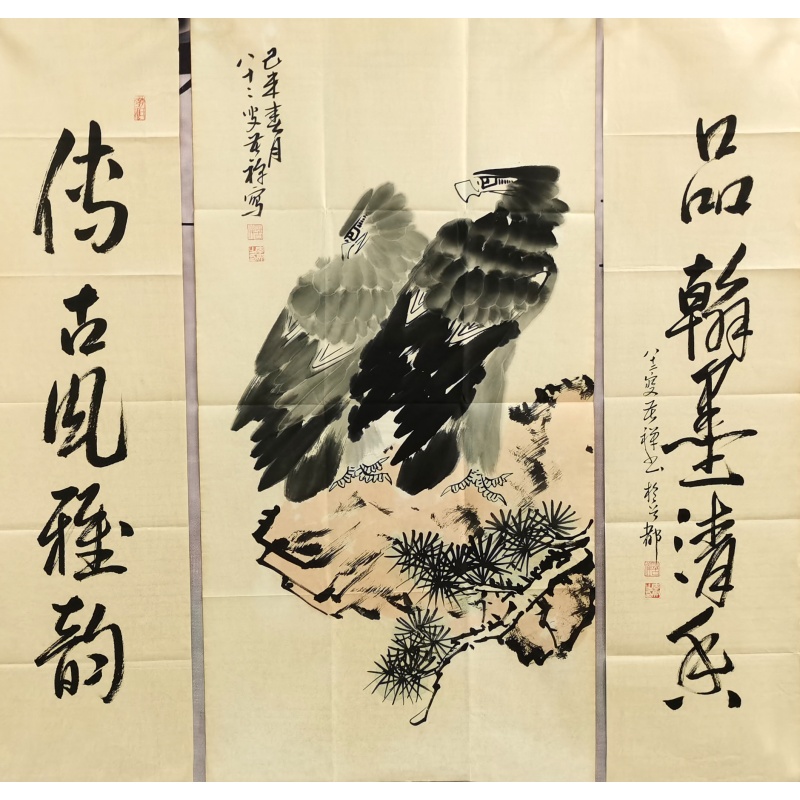 品翰墨清香
八十二叟苦禪书於首都
己未春月
八十二叟苦禅写
傳古风雅韵